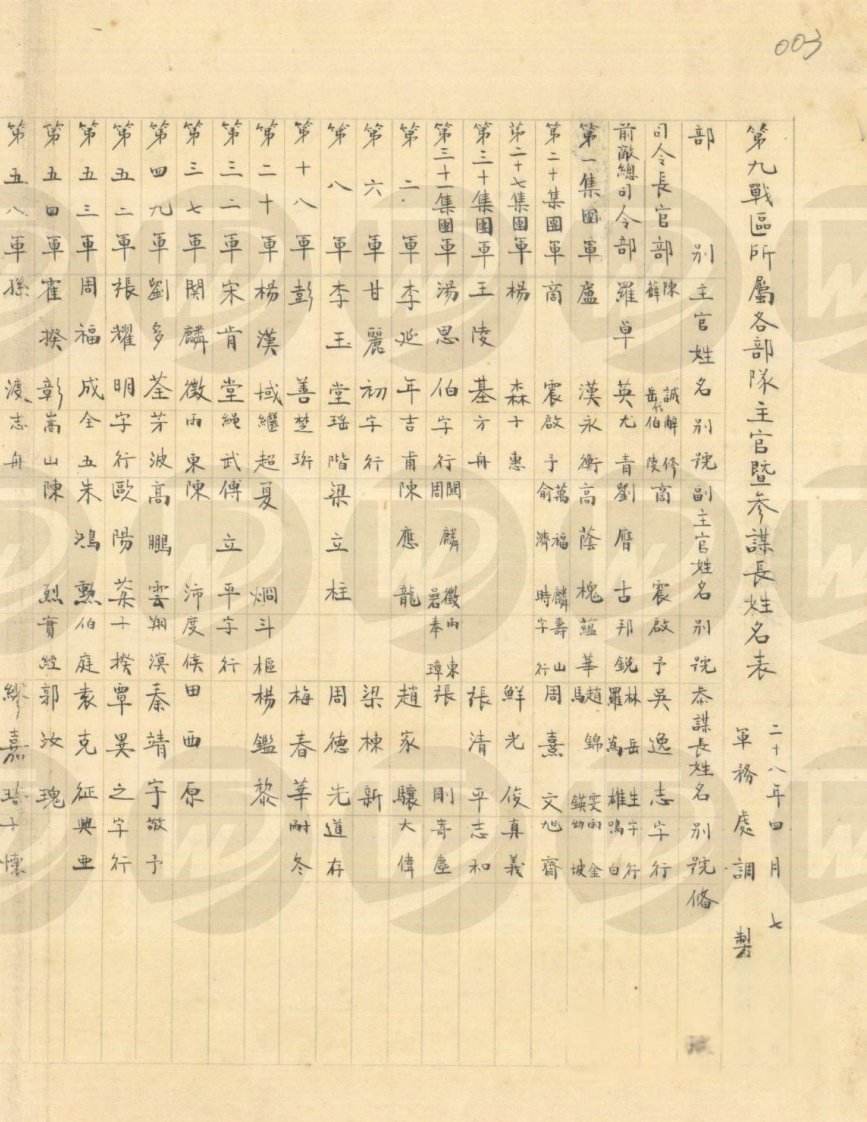 003
第九戰區所屬各部隊主官暨參謀長姓名表
二十八年四月 七
軍務處調製
部別 主官姓名 別號 副主官姓名 別號 參謀長姓名 別號 備
司令長官部 陳誠 辭修 薛岳 伯陵 商震 啟予 吳逸志 字行
前敵總司令部 羅卓英 尤青 劉膺古 邦銳 林岳生 字行 羅為雄 鳴白
第一集團軍 盧漢 永衡 高蔭槐 蘊華 趙錦雯 雨金 馬鍈 幼坡
第二十集團軍 商震 啟予 萬福麟 壽山 俞濟時 字行 周熹文 旭齋
第二十七集團軍 楊森 子惠 鮮光俊 真義
第三十集團軍 王陵基 方舟 張清平 志和
第三十一集團軍 湯恩伯 字行 関麟徵 雨東 周碞 奉璋 張剛 壽塵
第二軍 李延年 吉甫 陳應龍 趙家驤 大偉
第六軍 甘麗初 字行 梁棟新
第八軍 李玉堂 瑤階 梁立柱 周德先 道存
第十八軍 彭善 楚珩 梅春華 耐冬
第二十軍 楊漢域 繼超 夏炯 斗樞 楊鑑黎
第三二軍 宋肯堂 繩武 傅立平 字行
第三七軍 関麟徵 雨東 陳沛 度侯 田西原
第四九軍 劉多荃 芳波 高鵬雲 翔溟 秦靖宇 敬予
第五二軍 張耀明 字行 歐陽棻 子揆 覃異之 字行
第五三軍 周福成 全五 朱鴻勲 伯庭 袁克征 興亜
第五四軍 霍揆彰 嵩山 陳烈 實經 郭汝瑰
第五八軍 孫渡 志舟 繆嘉 子懷